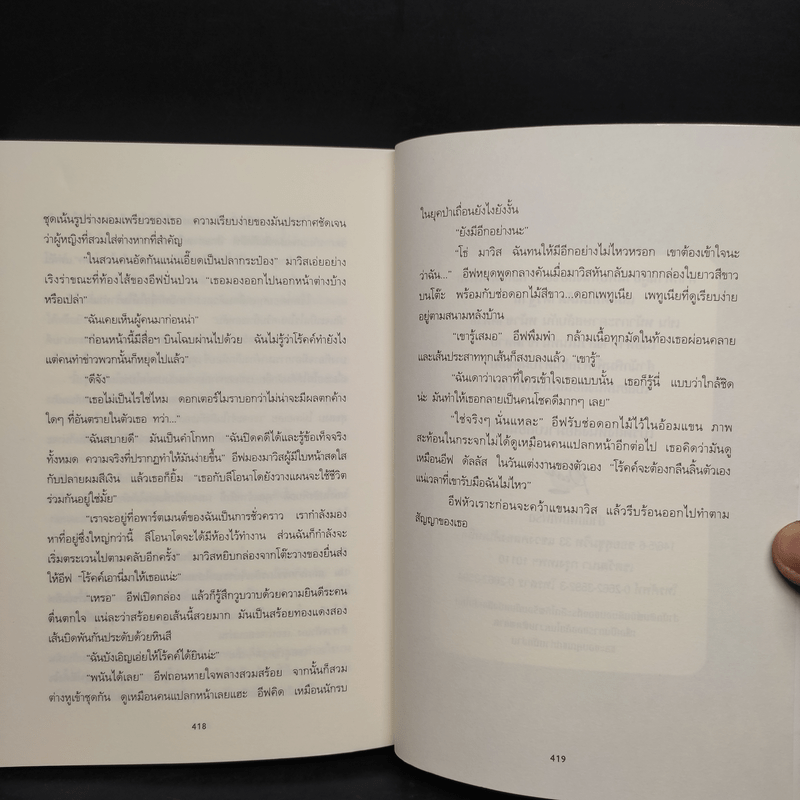 ชุดเน้นรูปร่างผอมเพรียวของเธอ ความเรียบง่ายของมันประกาศชัดเจน
ว่าผู้หญิงที่สวมใส่ต่างหากที่สำคัญ
"ในสวนคนอัดกันแน่นเอี๊ยดเป็นปลากระป๋อง" มาวิสเอ่ยอย่าง
เริงร่าขณะที่ท้องไส้ของอีฟปั่นป่วน "เธอมองออกไปนอกหน้าต่างบ้าง
หรือเปล่า"
"ฉันเคยเห็นผู้คนมาก่อนน่า"
"ก่อนหน้านี้มีสื่อฯ บินโฉบผ่านไปด้วย ฉันไม่รู้ว่าโร้คค์ทำยังไง
แต่คนทำข่าวพวกนั้นก็หยุดไปแล้ว"
"ดีจัง"
"เธอไม่เป็นไรใช่ไหม ดอกเตอร์ไมราบอกว่าไม่น่าจะมีผลตกค้าง
ใดๆ ที่อันตรายในตัวเธอ ทว่า..."
"ฉันสบายดี" มันไม่เป็นคำโกหก "ฉันปิดคดีได้และรู้ข้อเท็จจริง
ทั้งหมด ความจริงที่ปรากฏทำให้มันง่ายขึ้น" อีฟมองมาวิสผู้มีใบหน้าสดใส
กับปลายผมสีเงิน แล้วเธอก็ยิ้ม "เธอกับลีโอนาโดยังวางแผนจะใช้ชีวิต
ร่วมกันอยู่ใช่มั้ย"
"เราจะอยู่ที่อพาร์ตเมนต์ของฉันเป็นการชั่วคราว เรากำลังมอง
หาที่อยู่ซึ่งใหญ่กว่านี้ ลีโอนาโดจะได้มีห้องไว้ทำงาน ส่วนฉันก็กำลังจะ
เริ่มตระเวนไปตามคลับอีกครั้ง" มาวิสหยิบกล่องจากโต๊ะวางของยื่นส่ง
ให้อีฟ "โร้คค์เอานี่มาให้เธอแน่ะ"
"เหรอ" อีฟเปิดกล่อง แล้วก็รู้สึกวูบวาบด้วยความยินดีระคน
ตื่นตกใจ แน่ละว่าสร้อยคอเส้นนี้สวยมาก มันเป็นสร้อยทองแดงสอง
เส้นบิดพันกันประดับด้วยหินสี
"ฉันบังเอิญเอ่ยให้โร้คค์ได้ยินน่ะ"
"พนันได้เลย" อีฟถอนหายใจพลางสวมสร้อย จากนั้นก็สวม
ต่างหูเข้าชุดกัน ดูเหมือนคนแปลกหน้าเลยแฮะ อีฟคิด เหมือนนักรบ
418
ในยุคป่าเถื่อนยังไงยังงั้น
"ยังมีอีกอย่างนะ"
"โธ่ มาวิส ฉันทนให้มีอีกอย่างไม่ไหวหรอก เขาต้องเข้าใจนะ
ว่าฉัน..." อีฟหยุดพูดกลางคันเมื่อมาวิสหันกลับมาจากกล่องใบยาวสีขาว
บนโต๊ะ พร้อมกับช่อดอกไม้สีขาว...ดอกเพทูเนีย เพทูเนียที่ดูเรียบง่าย
อยู่ตามสนามหลังบ้าน
"เขารู้เสมอ" อีฟพึมพำ กล้ามเนื้อทุกมัดในท้องเธอผ่อนคลาย
และเส้นประสาททุกเส้นก็สงบลงแล้ว "เขารู้"
"ฉันเดาว่าเวลาที่ใครเข้าใจเธอแบบนั้น เธอก็รู้นี่ แบบว่าใกล้ชิด
น่ะ มันทำให้เธอกลายเป็นคนโชคดีมากๆ เลย"
"ใช่จริงๆ นั่นแหละ" อีฟรับช่อดอกไม้ไว้ในอ้อมแขน ภาพ
สะท้อนในกระจกไม่ได้ดูเหมือนคนแปลกหน้าอีกต่อไป เธอคิดว่ามันดู
เหมือนอีฟ ดัลลัส ในวันแต่งงานของตัวเอง "โร้คค์จะต้องกลืนลิ้นตัวเอง
แน่เวลาที่เขารับมือฉันไม่ไหว"
อีฟหัวเราะก่อนจะคว้าแขนมาวิส แล้วรีบร้อนออกไปทำตาม
สัญญาของเธอ
419